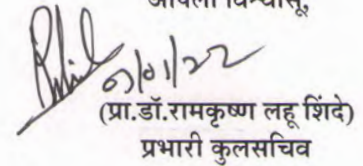 आपला विश्वासू,
(प्रा.डॉ.रामकृष्ण लहू शिंदे)
प्रभारी कुलसचिव